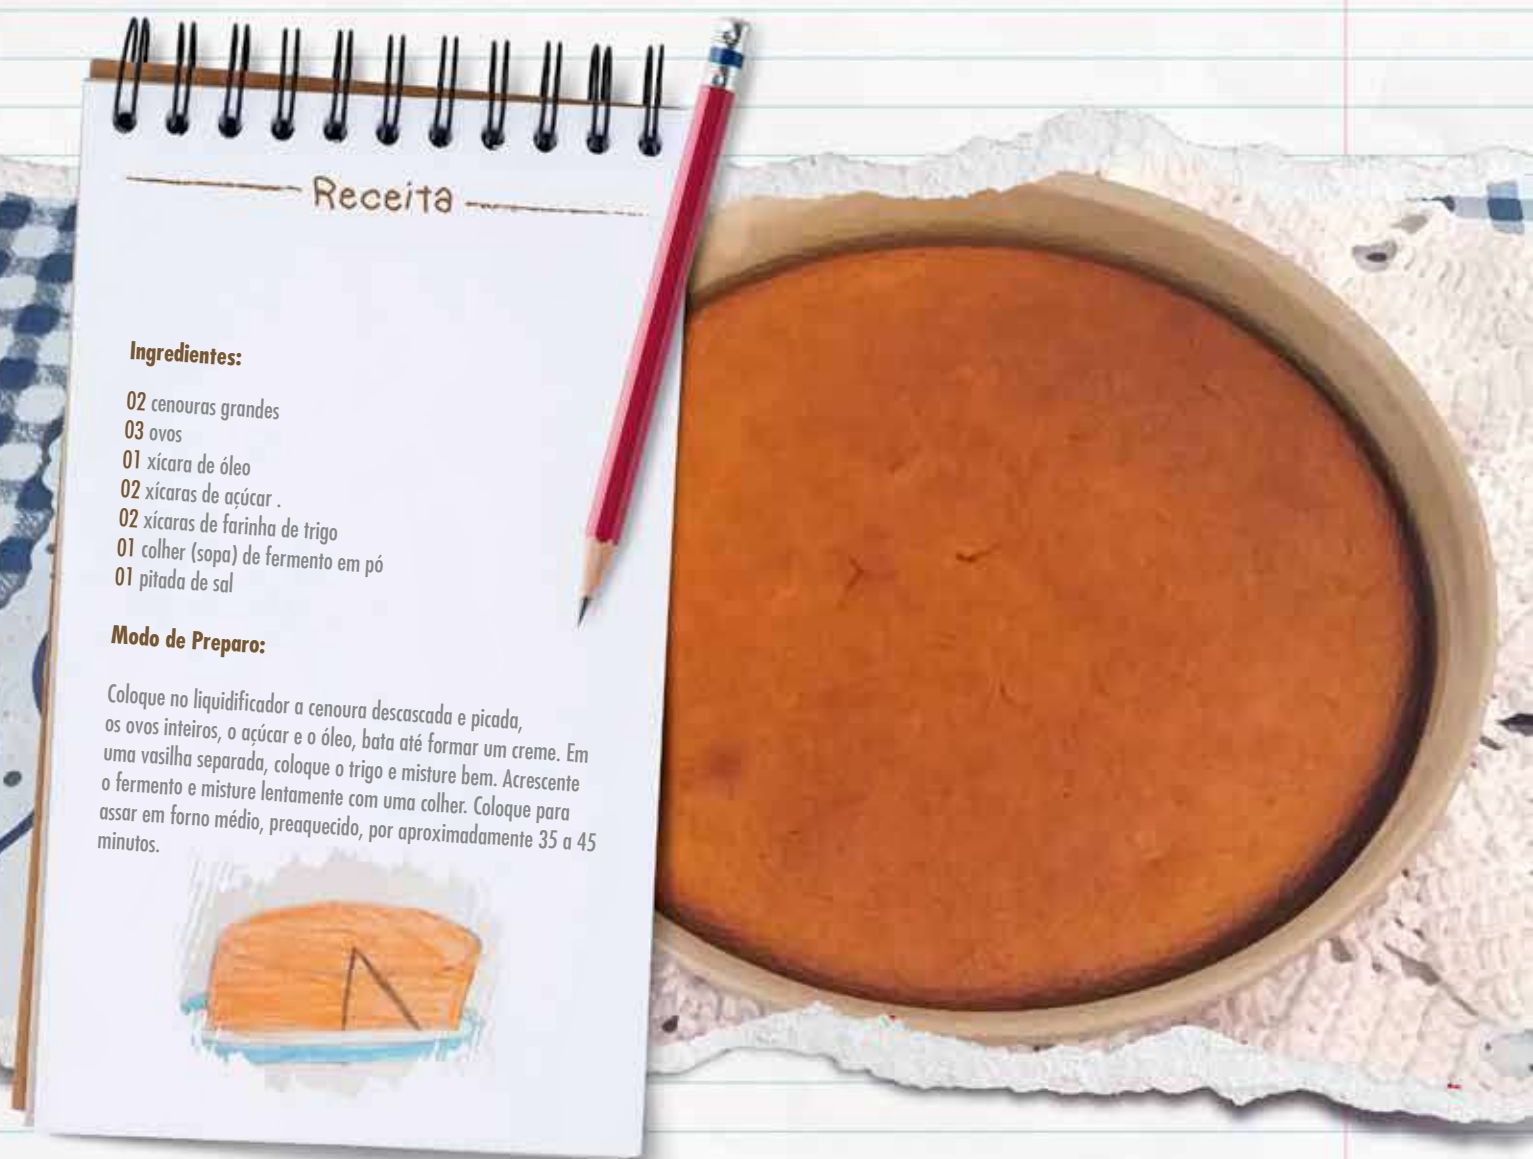 Receita
Ingredientes:
02 cenouras grandes
03 ovos
01 xícara de óleo
02 xícaras de açúcar .
02 xícaras de farinha de trigo
01 colher (sopa) de fermento em pó
01 pitada de sal
Modo de Preparo:
Coloque no liquidificador a cenoura descascada e picada,
os ovos inteiros, o açúcar e o óleo, bata até formar um creme. Em
uma vasilha separada, coloque o trigo e misture bem. Acrescente
o fermento e misture lentamente com uma colher. Coloque para
assar em forno médio, preaquecido, por aproximadamente 35 a 45
minutos.